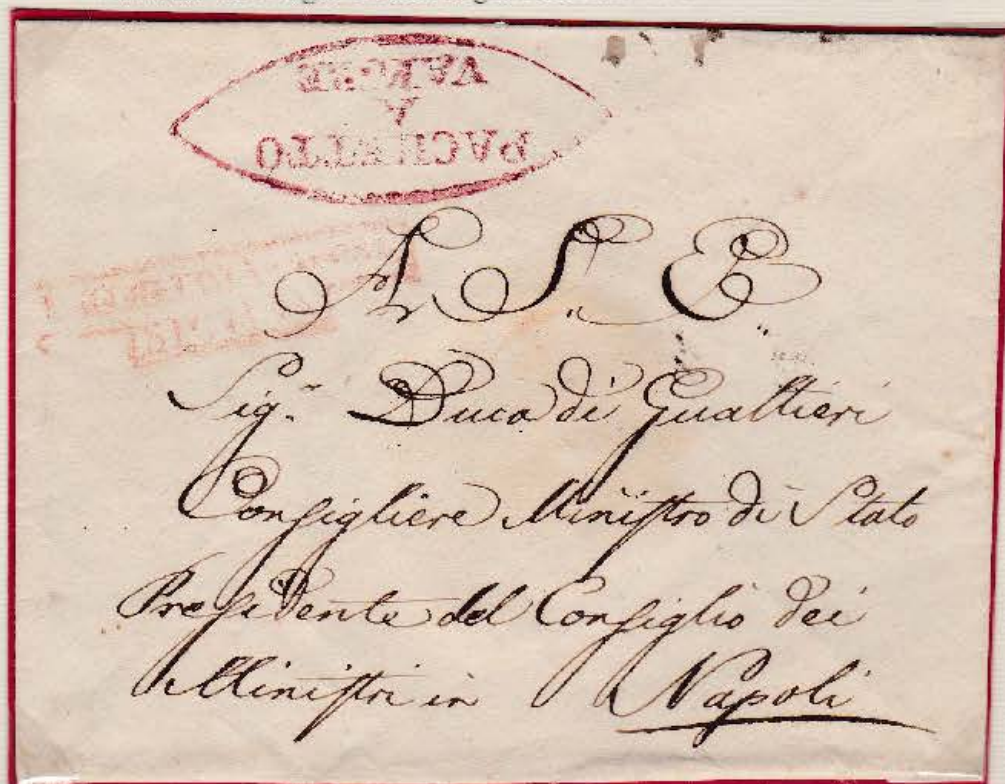 PACHETTO
A
VAPORE
A. S. E.
Sig.r Duca di Gualtieri
Consigliere Ministro di Stato
Presidente del Consiglio dei
Ministri in Napoli